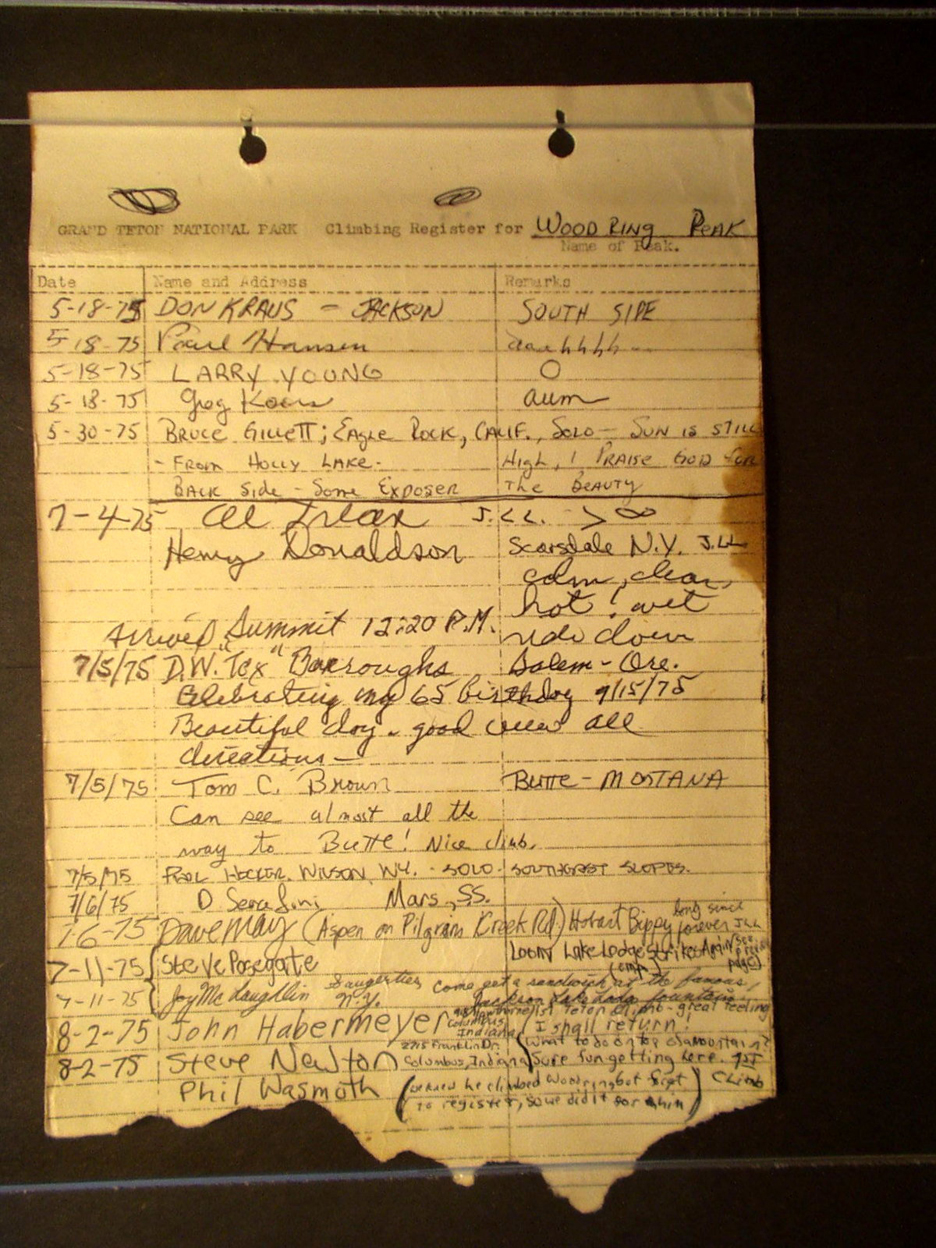 GRAND TETON NATIONAL PARK Climbing Register for WOODRING PEAK
Name of Peak.
Date Name and Address Remarks
5-18-75 DON KRAUS - JACKSON SOUTH SIDE
5-18-75 Paul Hansen aaahhhh...
5-18-75 LARRY YOUNG O
5-18-75 Greg aum
5-30-75 BRUCE GILLETT; EAGLE ROCK, CALIF., SOLO - SUN IS STILL
- FROM HOLLY LAKE - HIGH, I PRAISE GOD FOR
BACK SIDE - SOME EXPOSER THE BEAUTY
7-4-75 J.L.L. > ∞
Henry Donaldson Scarsdale N.Y. J.L.L.
calm, clear,
hot! wet
Arrived Summit 12:20 P.M. down
7/5/75 D.W. "Tex" Burroughs Salem - Ore.
Celebrating my 65 birthday 9/15/75
Beautiful day - good view all
directions -
7/5/75 Tom C. Brown BUTTE - MONTANA
Can see almost all the
way to Butte! Nice climb.
7/5/75 HECKER, WILSON, WY. - SOLO - SOUTHEAST SLOPES.
7/6/75 D Serafini Mars, SS.
7-6-75 Dave May (Aspen on Pilgrim Creek Rd) Hobart Bippy long since forever JLL
7-11-75 Steve Posegate Lake Lodge Strikes Again
7-11-75 Joy McLaughlin Saugerties N.Y. come get a sandwich at the famous,
Jackson Lake Lodge fountain
8-2-75 John Habermeyer Columbus Indiana 1st Teton climb - great feeling
I shall return!
8-2-75 Steve Newton 2715 Franklin Dr. Columbus, Indiana (What to do on top of a mountain?
Sure fun getting here. 1st Climb
Phil Wasmoth (he climbed Woodring but forgot
to register, so we did it for him)